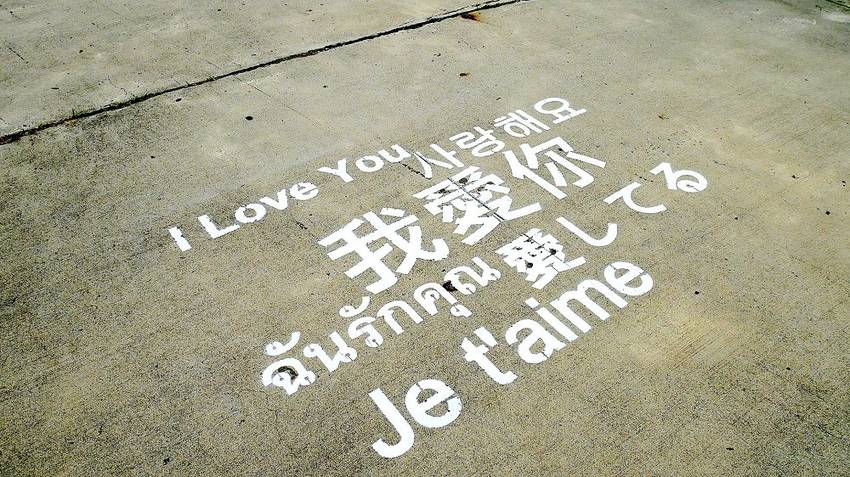 I Love You 사랑해요
我愛你
ฉันรักคุณ 愛してる
Je t'aime